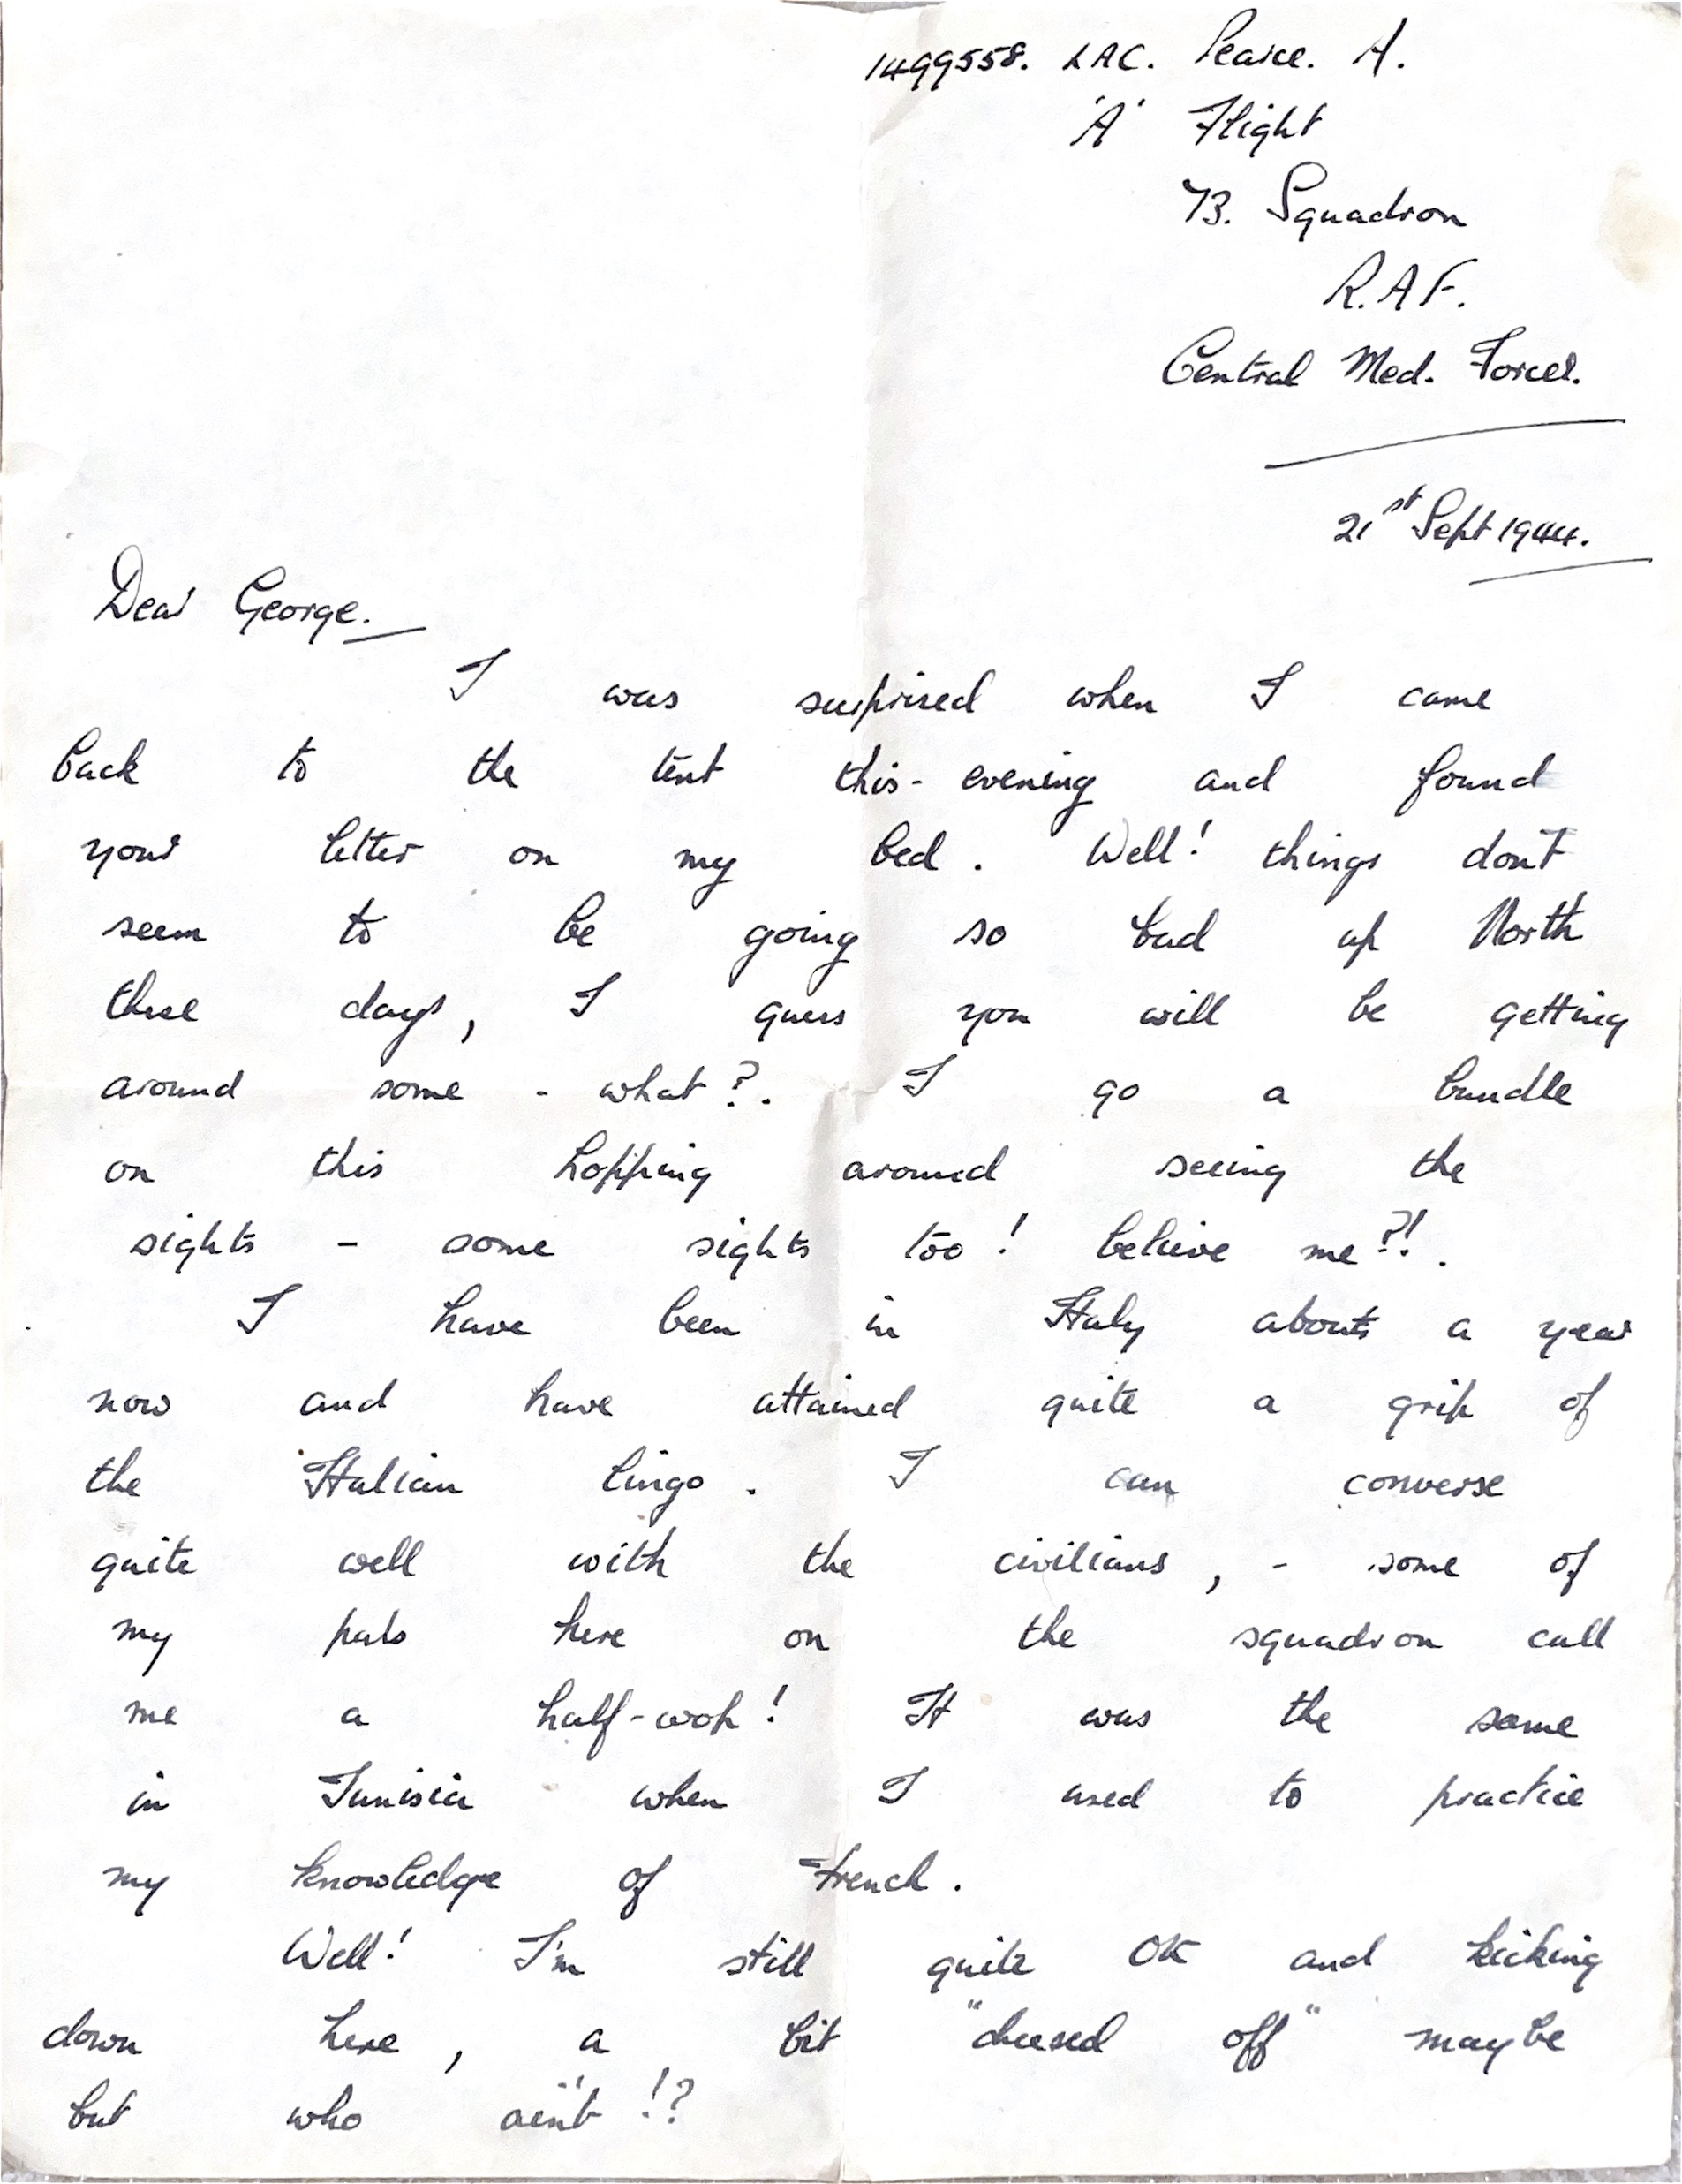 1499558. LAC. Pearce. A.
'A' Flight
73. Squadron
R.A.F.
Central Med. Forces.
21st Sept 1944.
Dear George.
I was surprised when I came
back to the tent this- evening and found
your letter on my bed. Well! things don't
seem to be going so bad up North
these days, I guess you will be getting
around some - what?. I go a bundle
on this hopping around seeing the
sights - some sights too! believe me?!.
I have been in Italy about a year
now and have attained quite a grip of
the Italian lingo. I can converse
quite well with the civilians, - some of
my pals here on the squadron call
me a half-wop! It was the same
in Tunisia when I used to practice
my knowledge of French.
Well! I'm still quite OK and kicking
down here, a bit "cheesed off" maybe
but who ain't!?